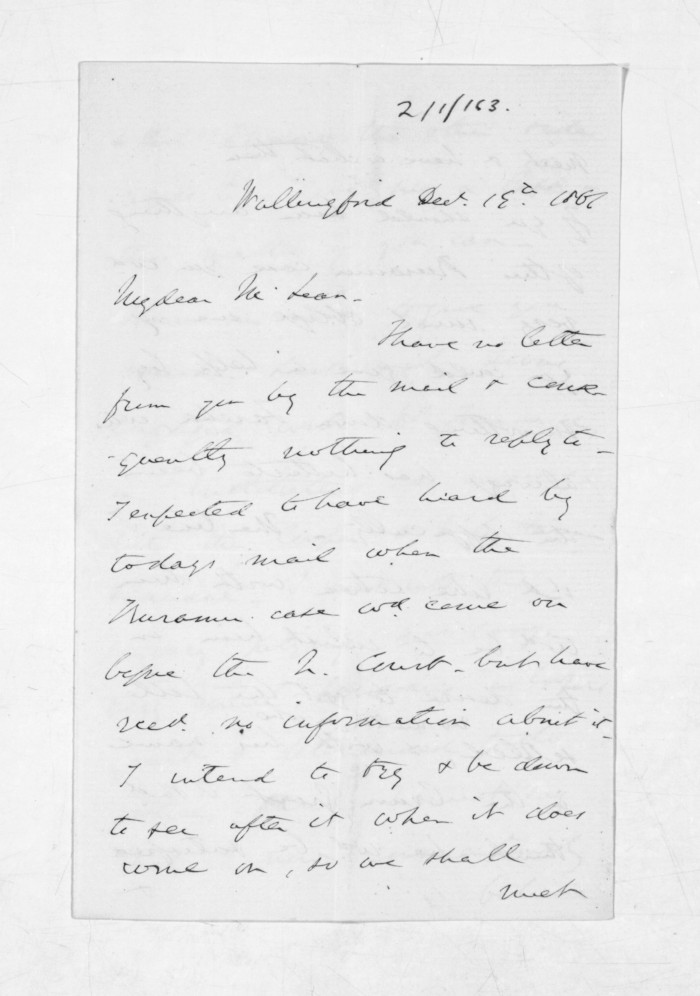 2/1/163.
Wallingford Decr. 19th. 186
My dear McLean -
I have no letter
from you by the mail & conse
-quently nothing to reply to -
I expected to have heard by
todays mail when the
case wod. come on
before the N. Court - but have
recd. no information about it -
I intend to try & be down
to see after it when it does
come on, so we shall
meet